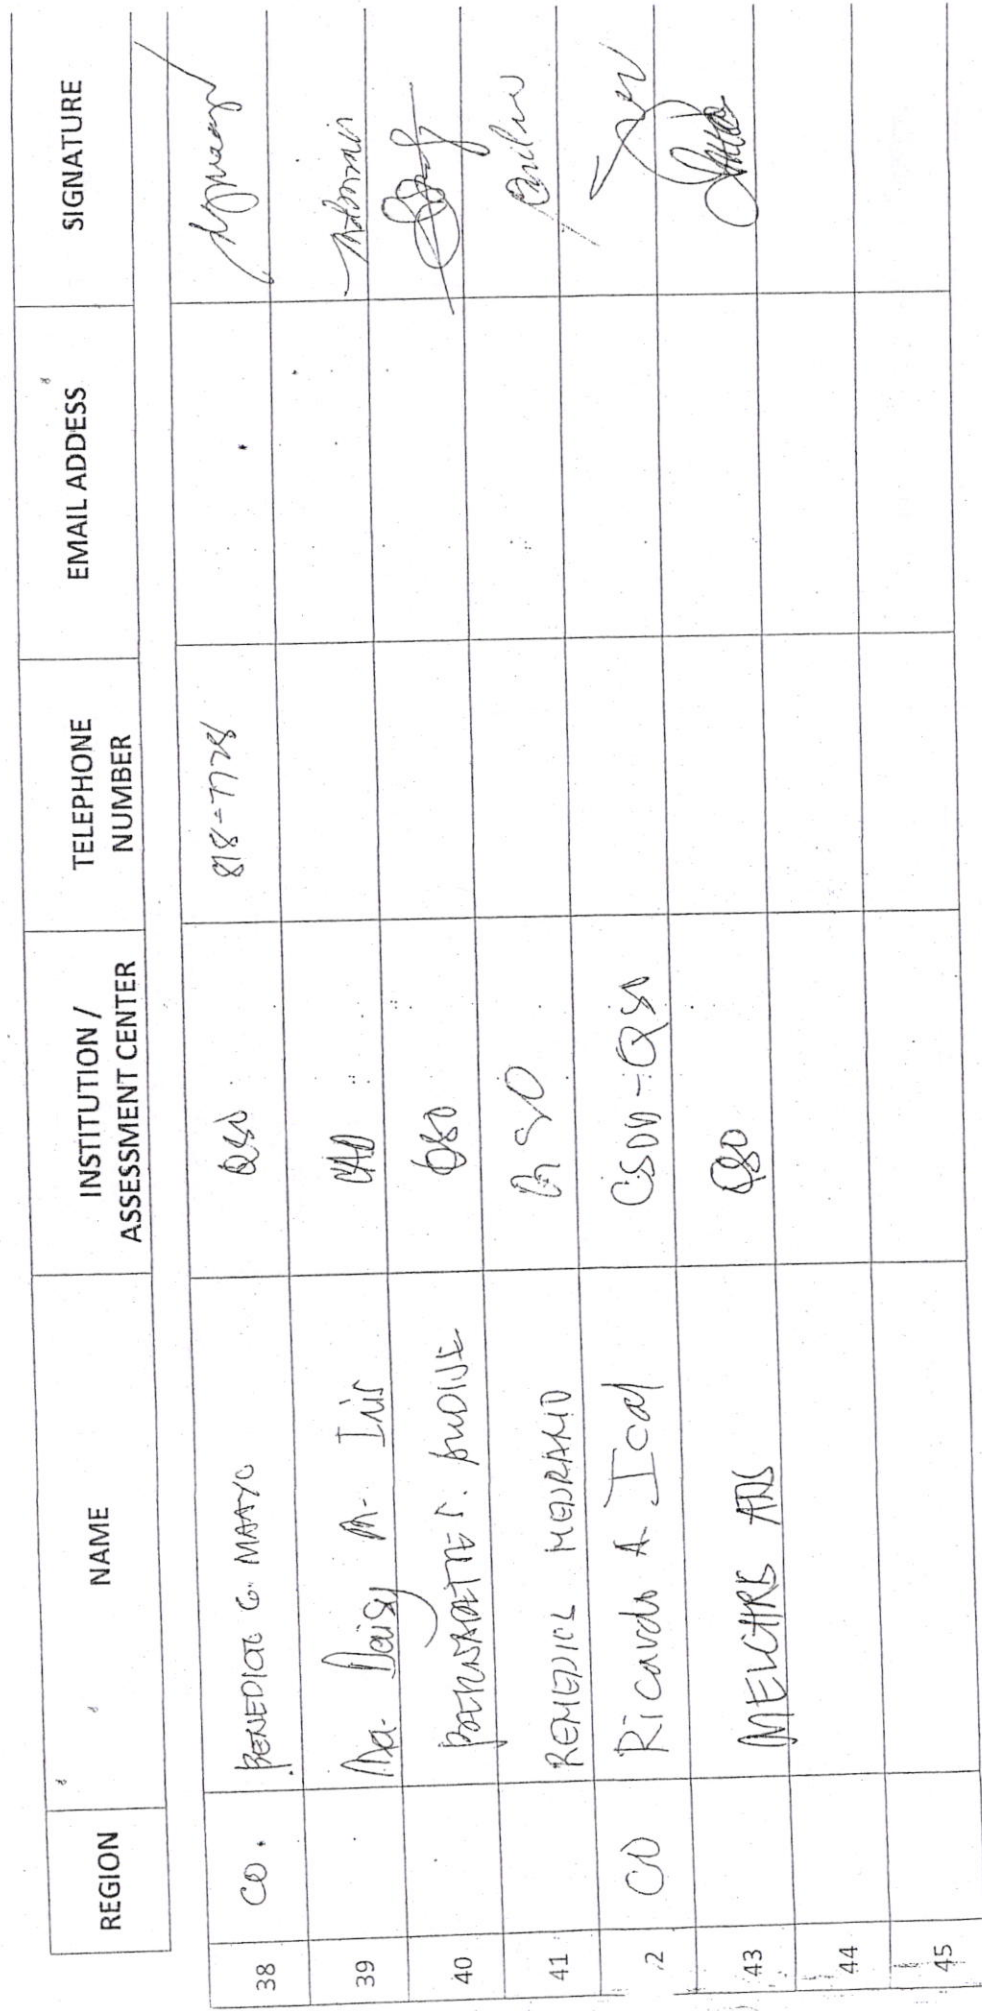 REGION NAME INSTITUTION / ASSESSMENT CENTER TELEPHONE NUMBER EMAIL ADDESS SIGNATURE
38 CO. BENEDICTO G. MAAYO QSO 818-7728
39 Ma. Daisy A. Inis
40 BERNADETTE S. AUDIJE QSO
41 REMEDIOS MEDRANO QSO
2 CO Ricardo A. Ical CSDD-QSO
43 QSO
44
45